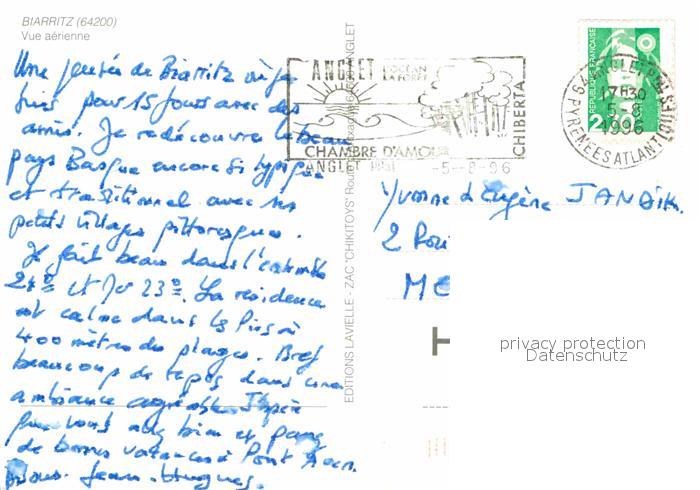 BIARRITZ (64200)
Vue aérienne
Une pensée de Biarritz où je
suis pour 15 jours avec des
amis. Je redécouvre le beau
pays Basque encore si typique
et traditionnel avec ses
petits villages pittoresques.
Il fait beau dans l'ensemble
24° et 23°. La résidence
est calme dans les Pins à
400 mètres des plages. Bref
beaucoup de repos dans une
ambiance agréable. J'espère
que vous allez bien et
de bonnes vacances à Pont
Bisous. Jean-Hugues.
EDITIONS LAVIELLE - ZAC "CHIKITOYS" ANGLET
ANGLET L'OCÉAN LA FORÊT
CHIBERTA
CHAMBRE D'AMOUR
ANGLET PPAL -5-8-96
RÉPUBLIQUE FRANÇAISE
17H30
5-8
1996
PYRENEES ATLANTIQUES
Yvonne & Eugène
2
privacy protection
Datenschutz